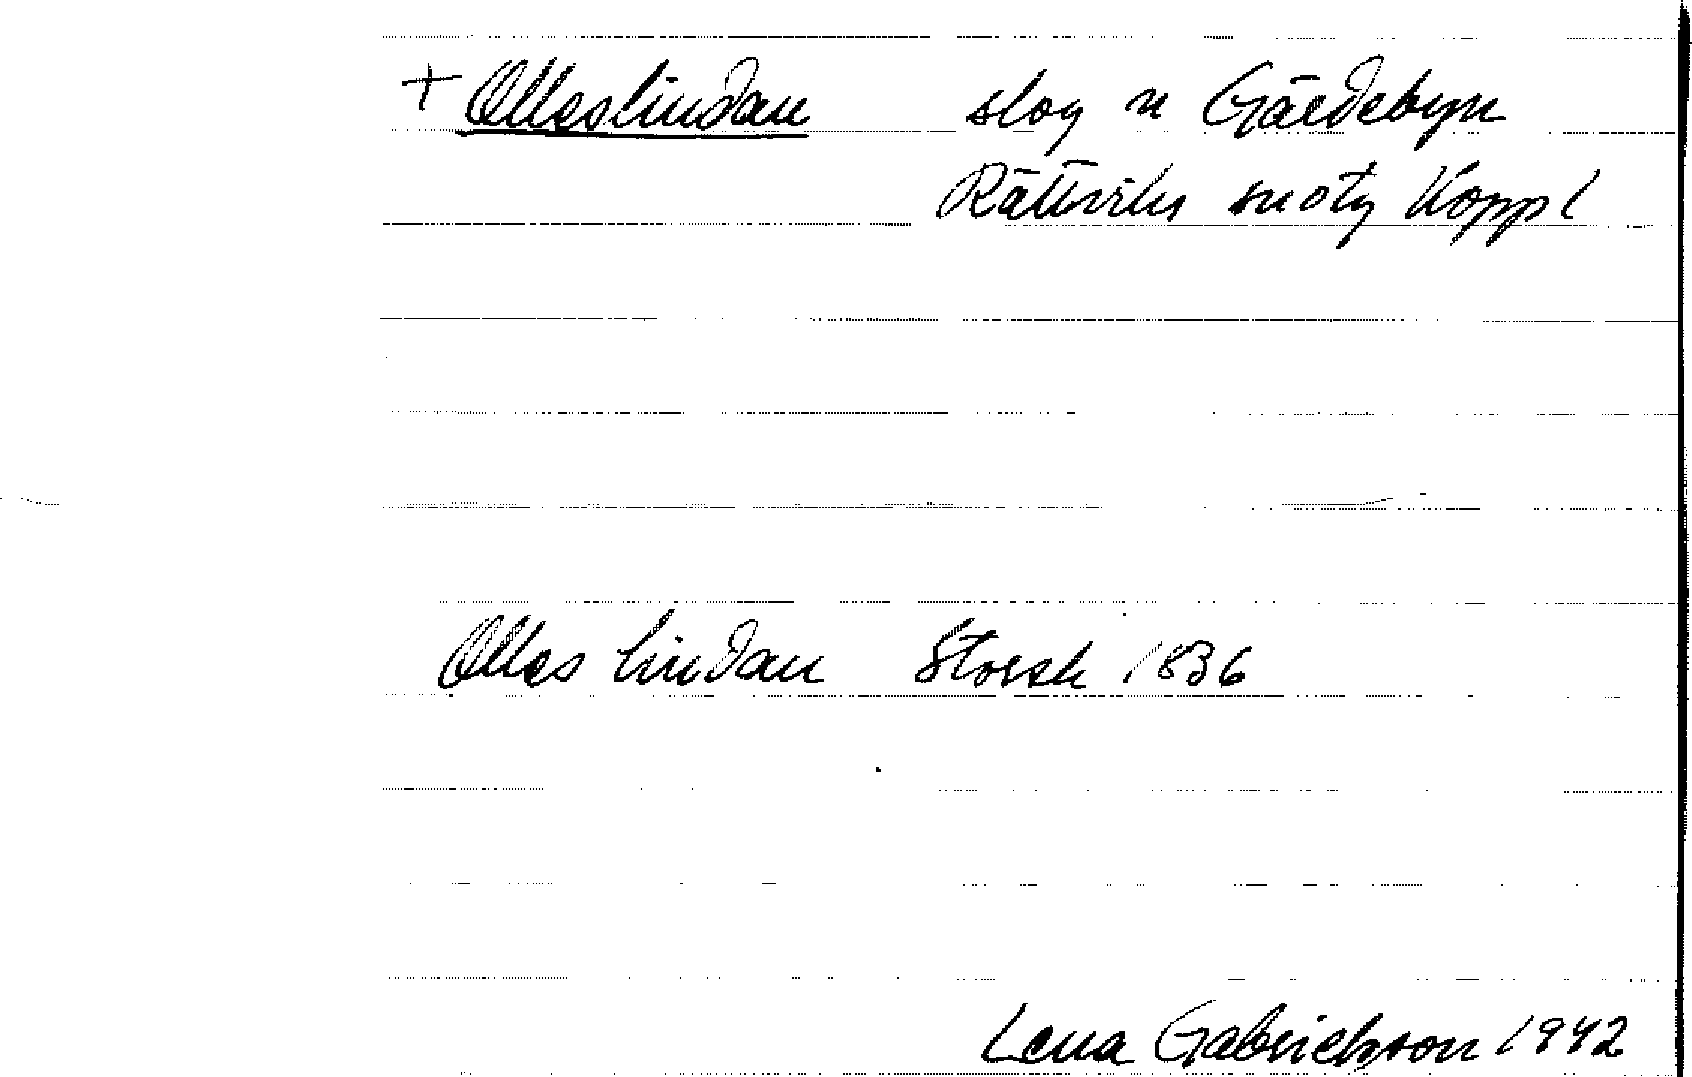 + Olleslindan skog n Gärdebyn
Rättviks sn o tg Koppl
Olles lindan Storsk 1836
Lena Gabrielsson 1942